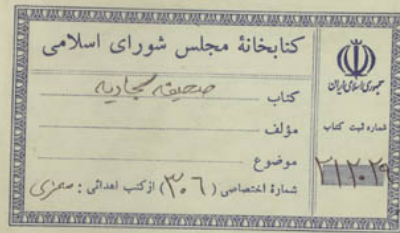 کتابخانهٔ مجلس شورای اسلامی
کتاب صحیفه سجادیه
مؤلف
موضوع
شمارهٔ اختصاصی (۳۰۶) از کتب اهدائی :
جمهوری اسلامی ایران
شماره ثبت کتاب
۲۱۲۰۲۹